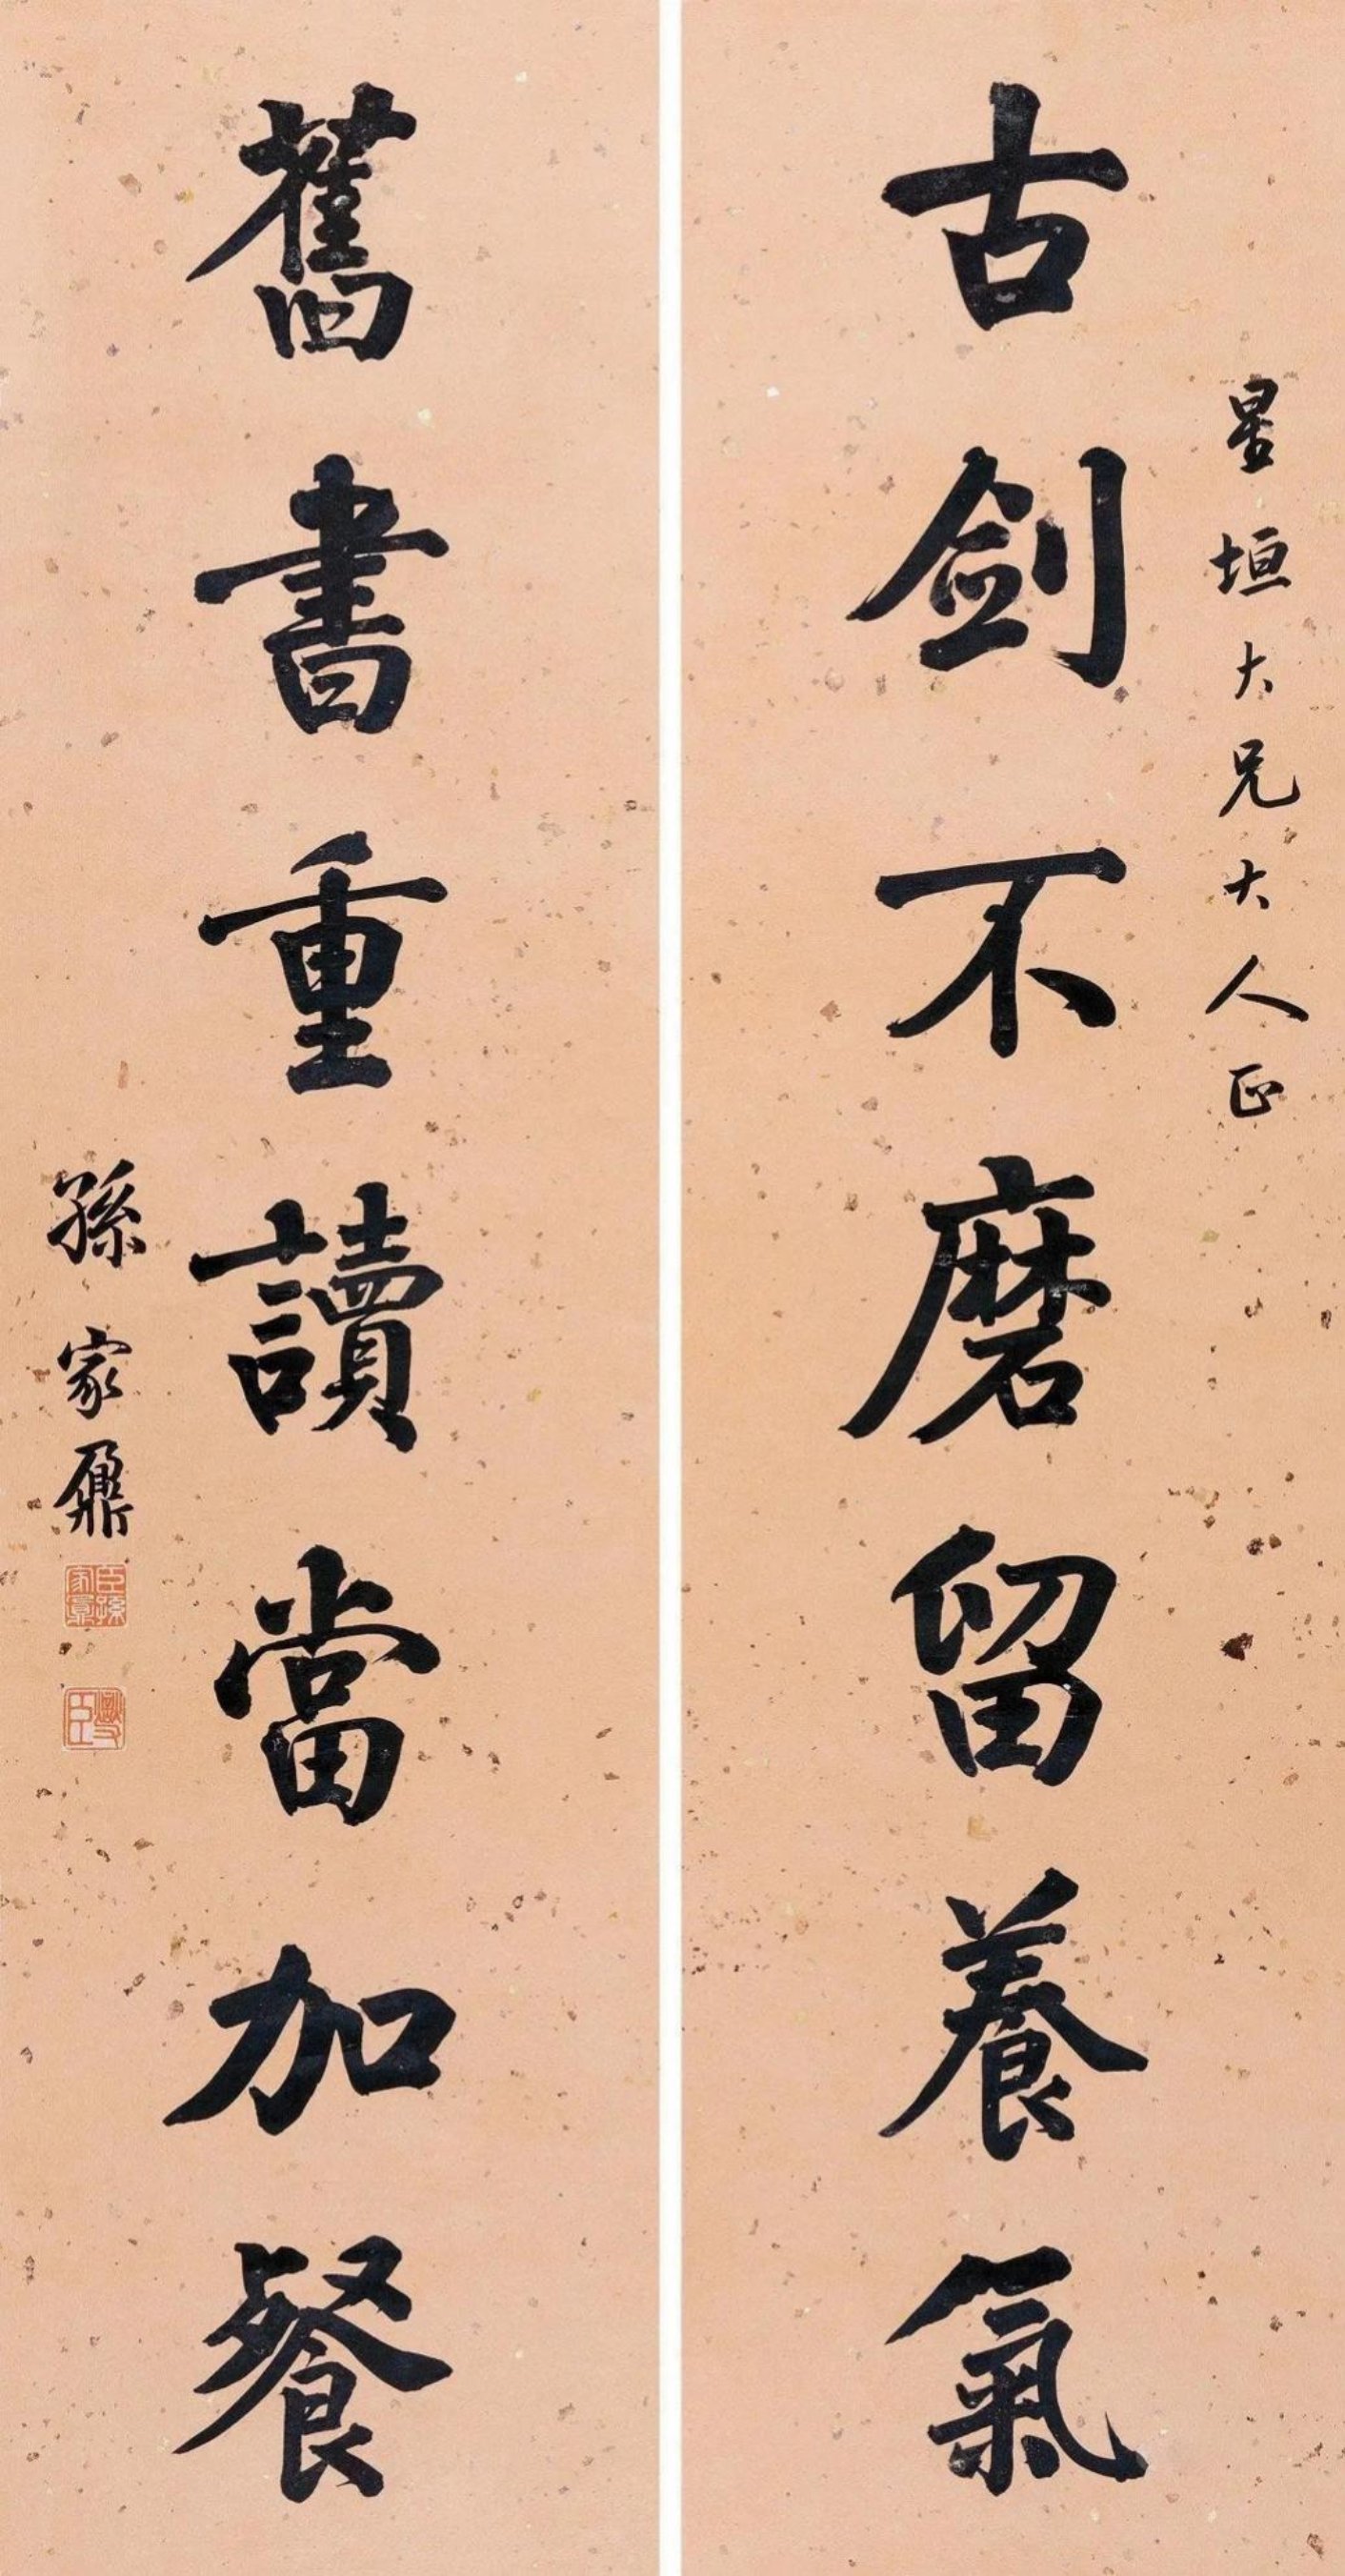 星垣大兄大人正
古劍不磨留養氣
舊書重讀當加餐
孫家鼐
臣孫家鼐